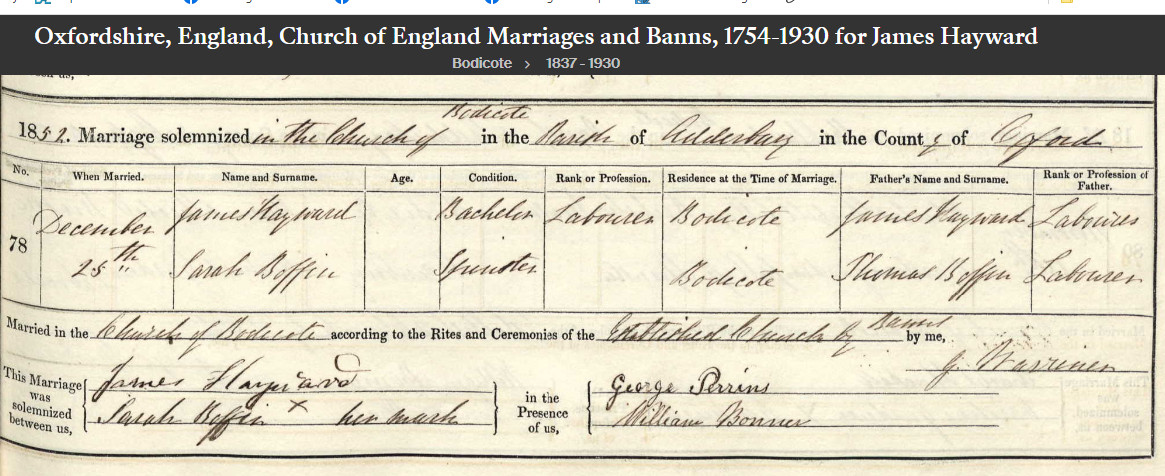 Oxfordshire, England, Church of England Marriages and Banns, 1754-1930 for James Hayward
Bodicote > 1837 - 1930
Bodicote
1852. Marriage solemnized in the Church of in the Parish of Adderbury in the County of Oxford
No. When Married. Name and Surname. Age. Condition. Rank or Profession. Residence at the Time of Marriage. Father's Name and Surname. Rank or Profession of Father.
78
December James Hayward Bachelor Labourer Bodicote James Hayward Labourer
25th Sarah Boffin Spinster Bodicote Thomas Boffin Labourer
Married in the Church of Bodicote according to the Rites and Ceremonies of the Established Church by Banns by me,
J. Warriner
This Marriage was solemnized between us,
James Hayward
Sarah Boffin x her mark
in the Presence of us,
George Perrins
William Bonner